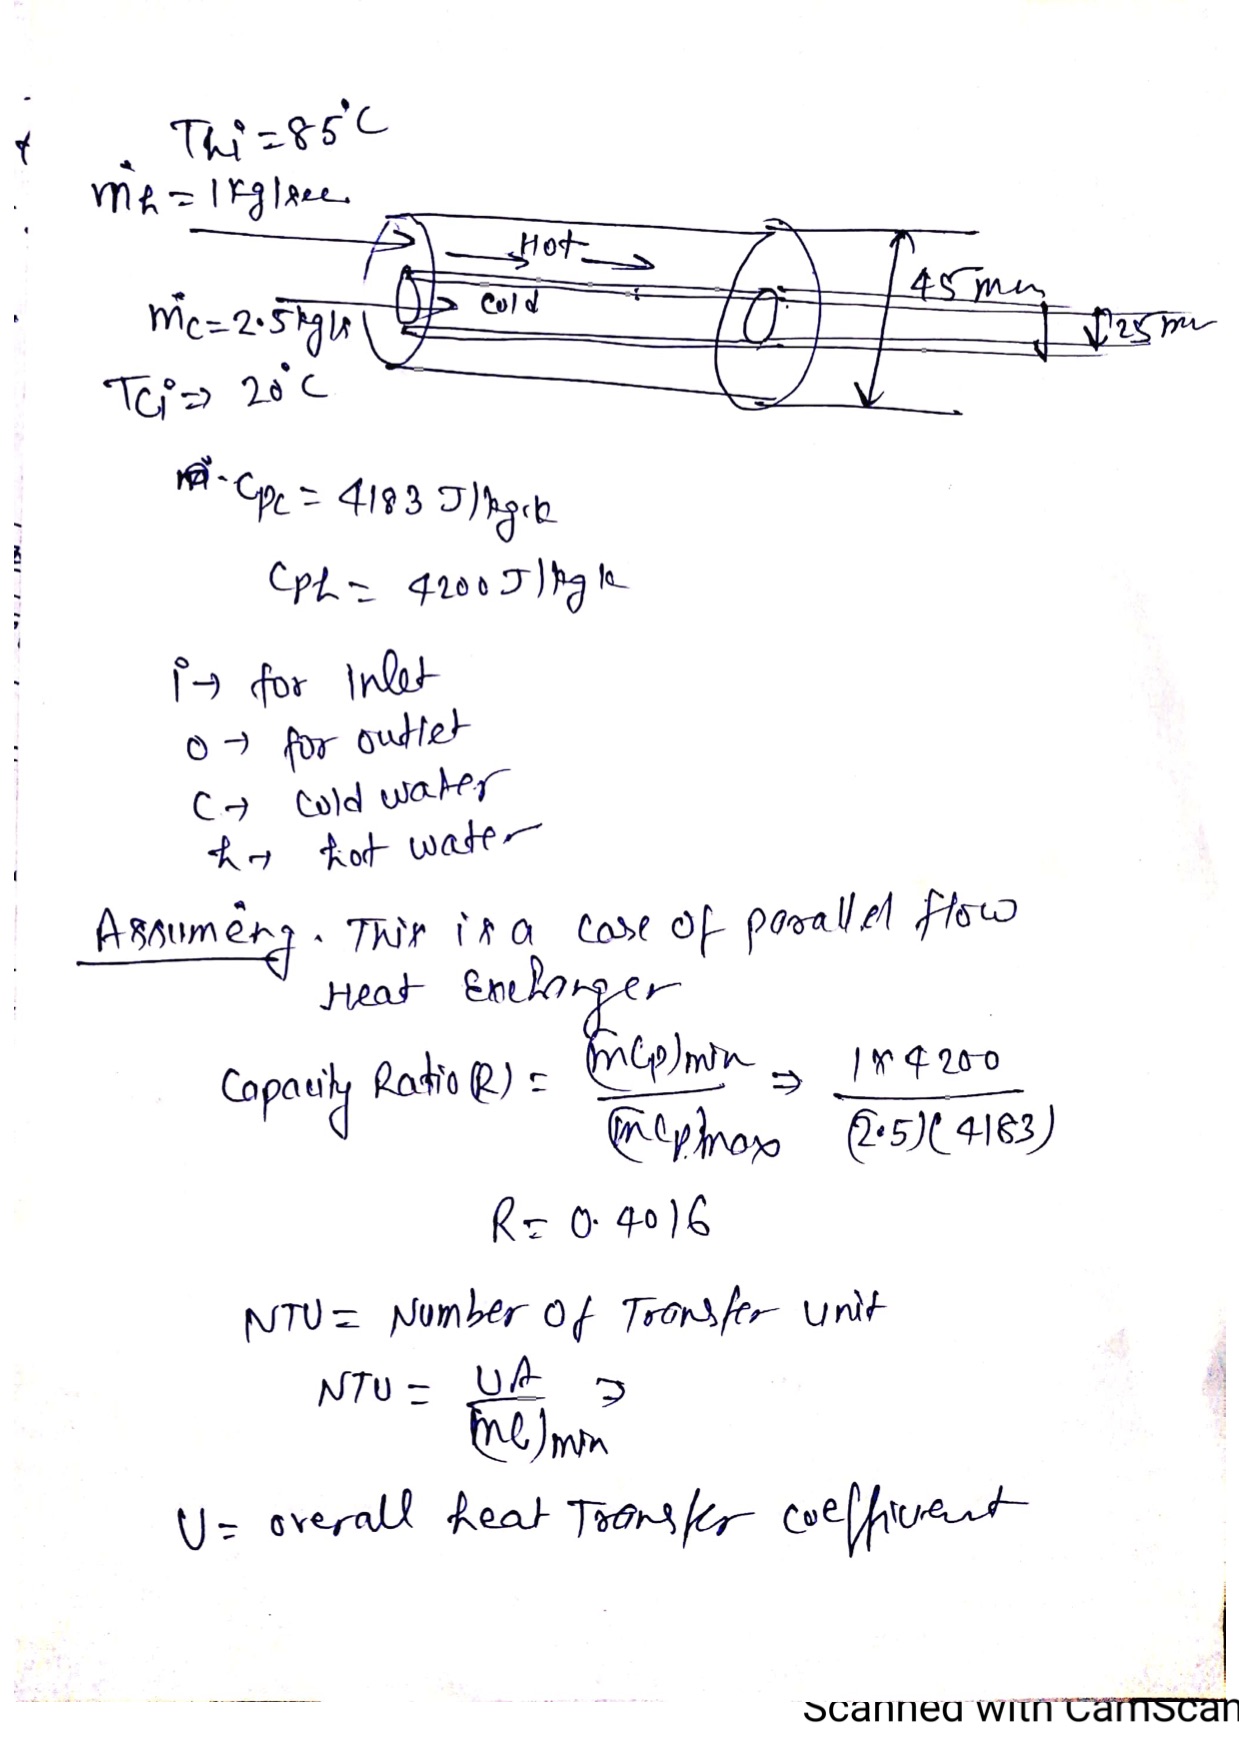 Thi = 85°C
ṁh = 1 kg/sec.
Hot
cold
45 mm
ṁc = 2.5 kg/s
25 mm
Tci ⇒ 20°C
Cpc = 4183 J/kg.k
Cph = 4200 J/kg k
i → for Inlet
o → for outlet
C → Cold water
h → hot water
Assuming. This is a case of parallel flow
Heat Exchanger
Capacity Ratio (R) = (ṁCp)min / (ṁCp)max ⇒ 1 × 4200 / (2.5)(4183)
R = 0.4016
NTU = Number of Transfer unit
NTU = UA / (ṁc)min ⇒
U = overall heat Transfer coefficient
Scanned with CamScan